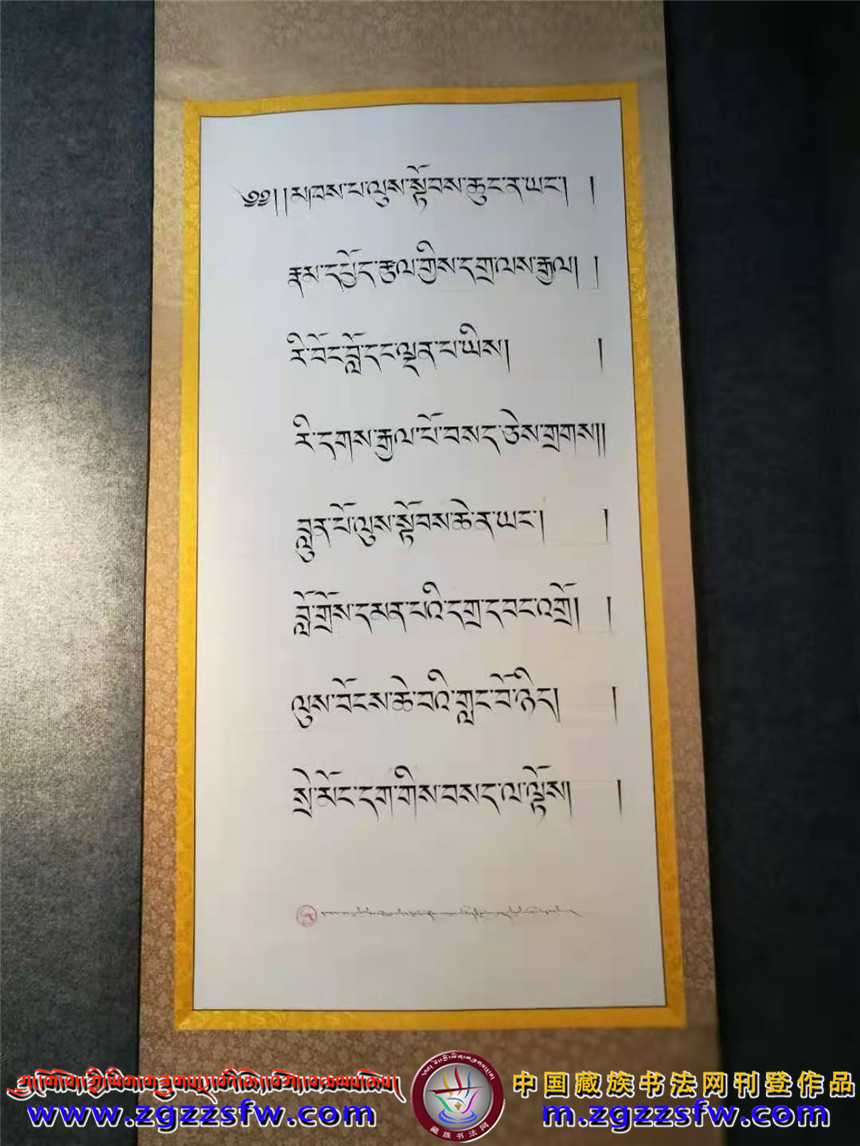 ༄༅། །མཁས་པ་ལུས་སྟོབས་ཆུང་ན་ཡང་། །
རྣམ་དཔྱོད་རྩལ་གྱིས་དགྲ་ལས་རྒྱལ། །
རི་བོང་བློ་དང་ལྡན་པ་ཡིས། །
རི་དགས་རྒྱལ་པོ་བསད་ཅེས་གྲགས། །
བླུན་པོ་ལུས་སྟོབས་ཆེ་ན་ཡང་། །
བློ་གྲོས་དམན་པའི་དགྲ་དབང་འགྲོ། །
ལུས་བོངས་ཆེ་བའི་གླང་པོ་ཉིད། །
སྲེ་མོང་དག་གིས་བསད་ལ་ལྟོས། །
藏族书法网
中国藏族书法网刊登作品
www.zgzzsfw.com
m.zgzzsfw.com